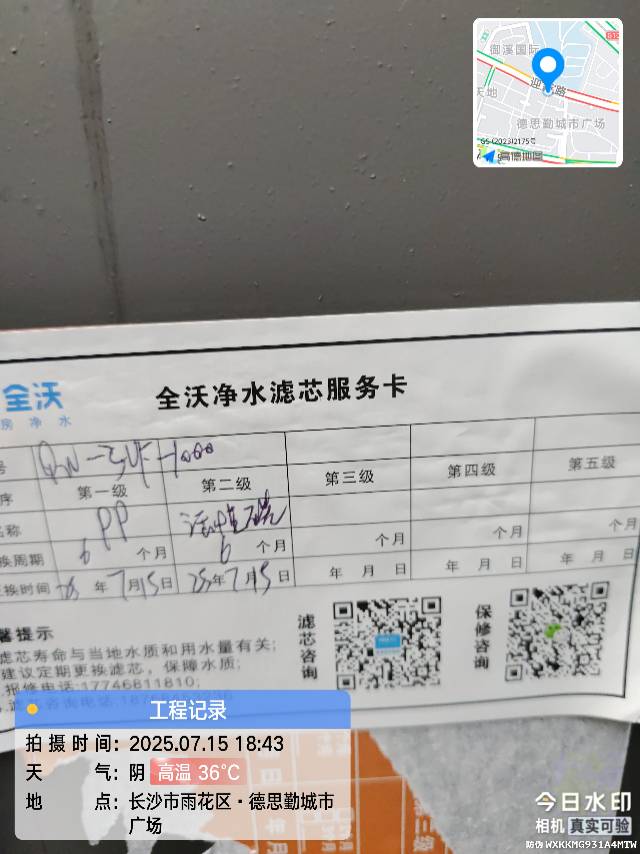 御溪国际
迎
路
天地
德思勤城市广场
GS(2023)2175号
高德地图
全沃
房净水
全沃净水滤芯服务卡
号
序 第一级 第二级 第三级 第四级 第五级
名称 PP
换周期 6 个月 6 个月 个月 个月 个月
更换时间 25 年 7 月 15 日 25 年 7 月 15 日 年 月 日 年 月 日 年 月 日
馨提示
滤芯寿命与当地水质和用水量有关;
建议定期更换滤芯，保障水质;
报修电话:17746811810;
滤芯咨询
保修咨询
工程记录
拍摄时间: 2025.07.15 18:43
天气: 阴 高温 36°C
地点: 长沙市雨花区·德思勤城市
广场
今日水印
相机 真实可验
防伪 WXKKMG931A4MTW